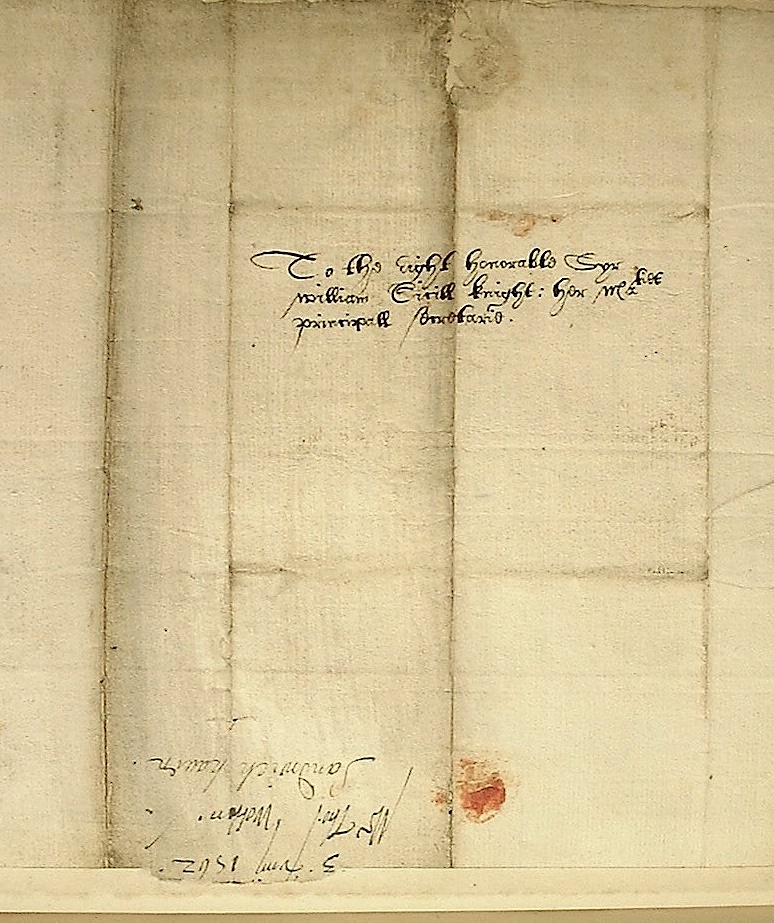 To the right honorable Syr
William Cicill knight: her Ma^ties
principall Secretarie.
3 Juny 1562.
Mr Tho:
Sandwich haven